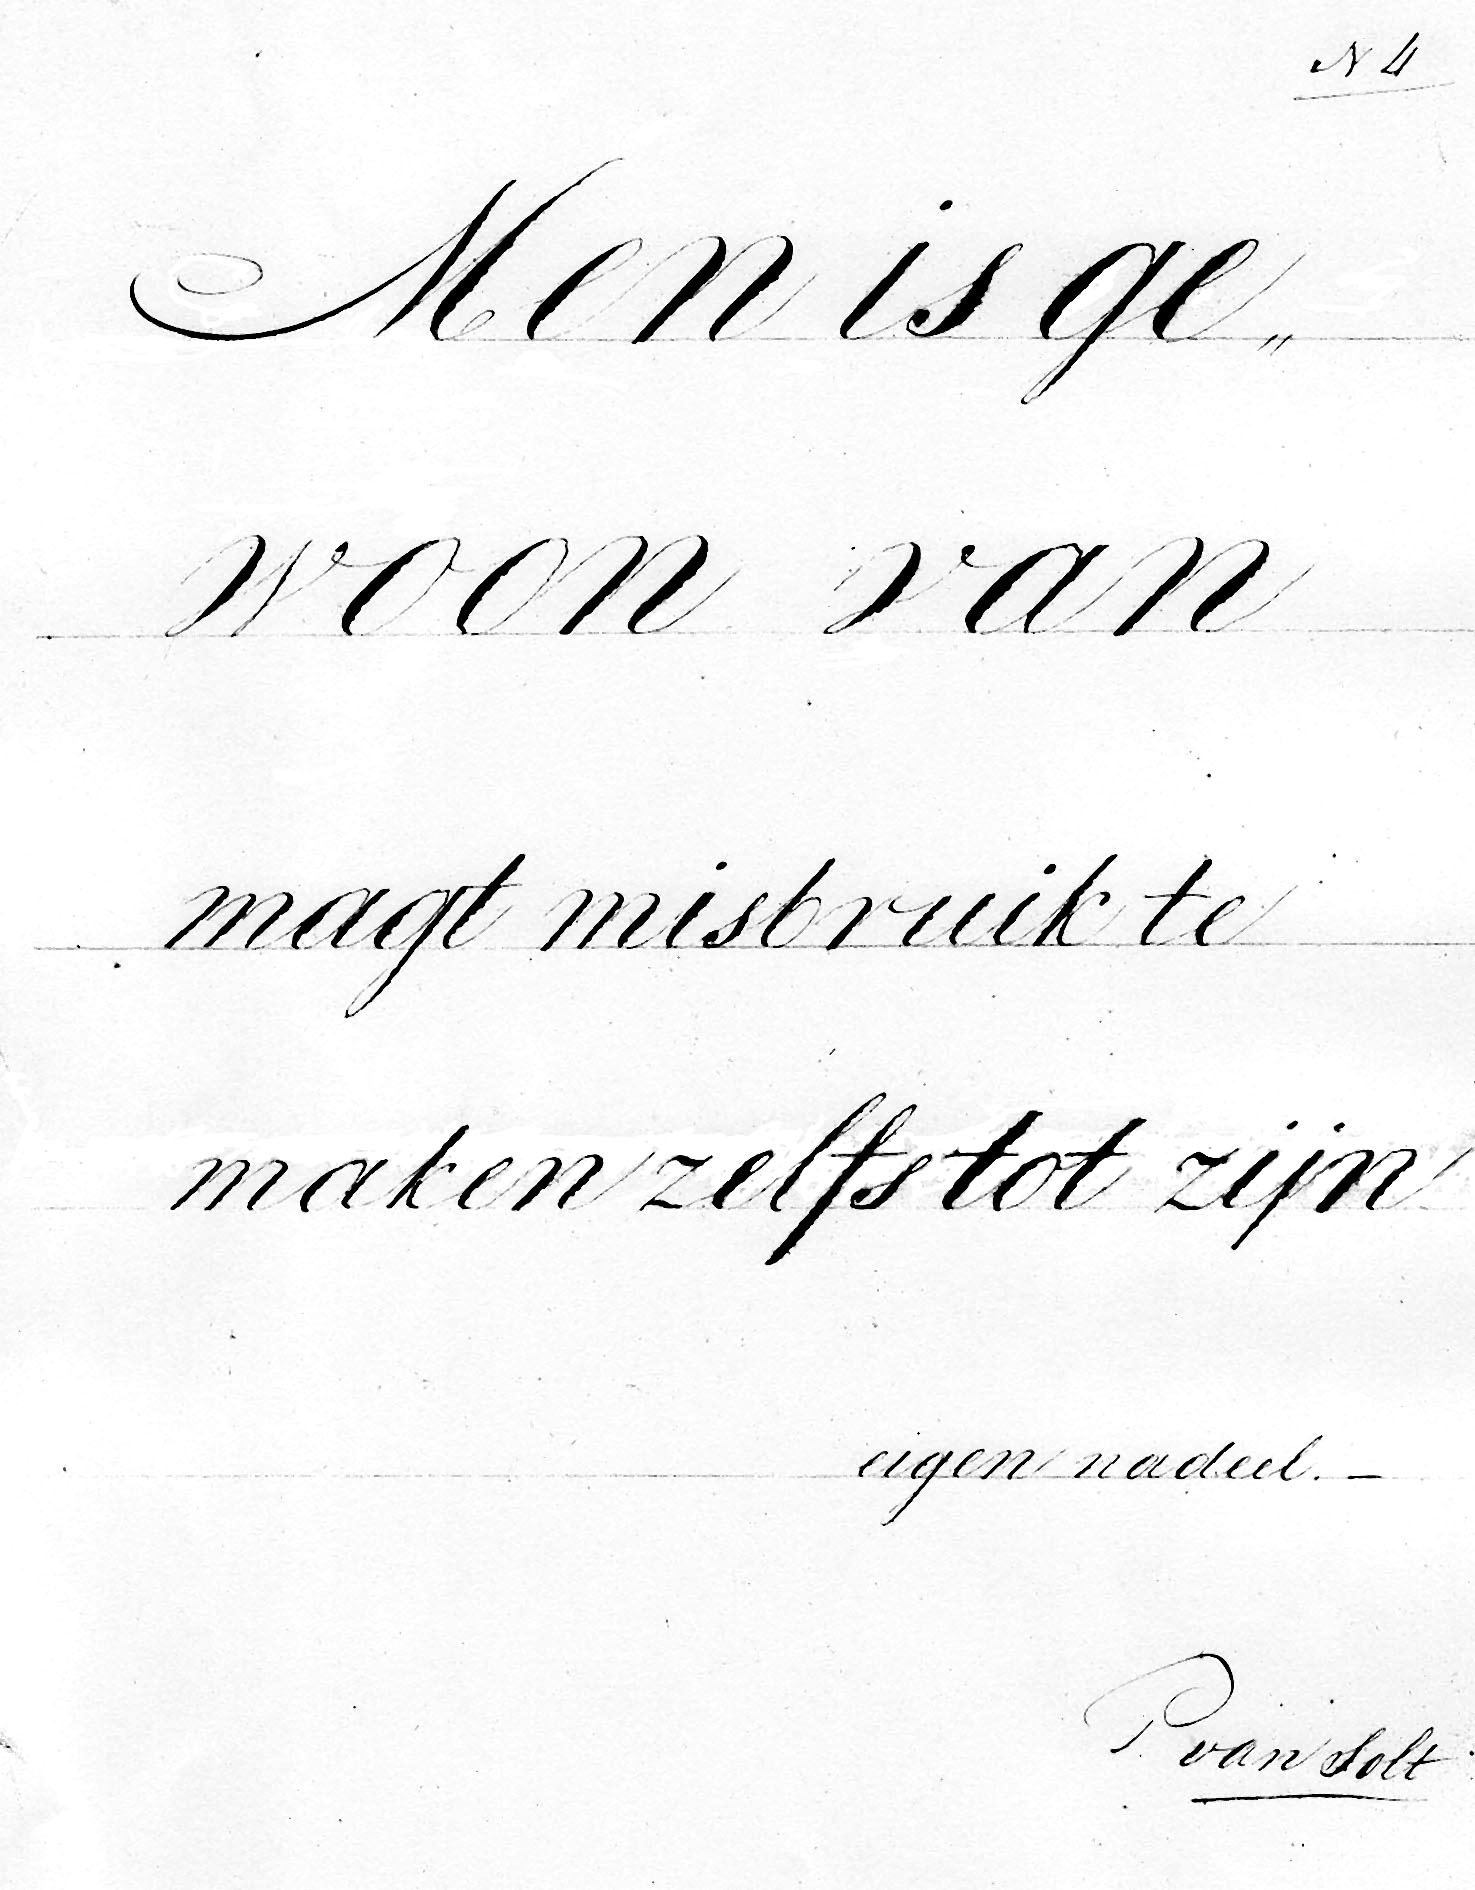 N 4
Men is ge„
woon van
magt misbruik te
maken zelfs tot zijn
eigen nadeel. —
P van Solt